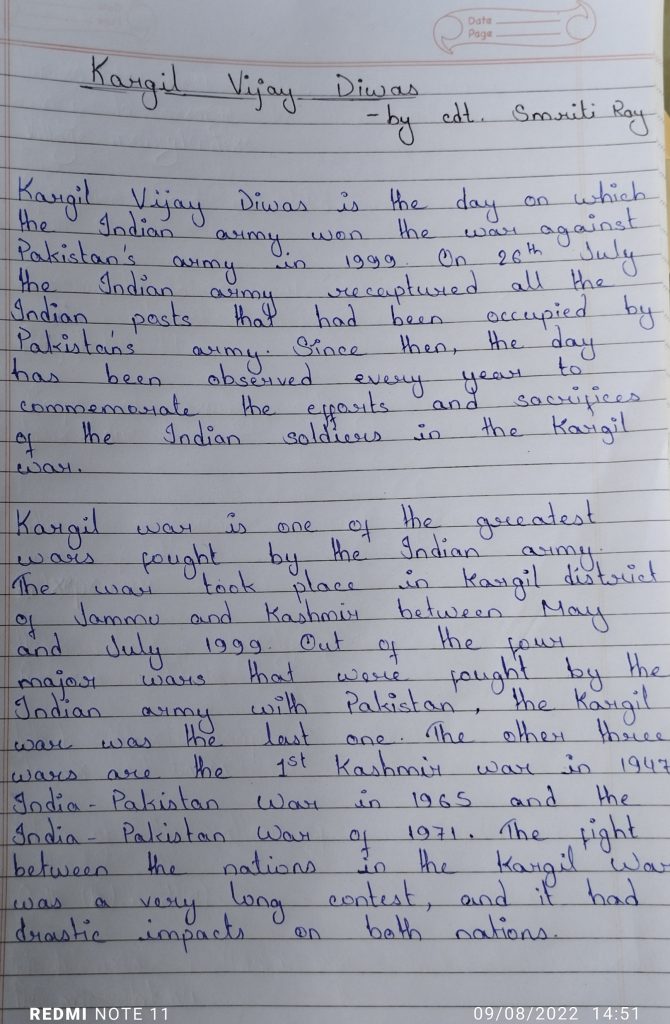 Date
Page
Kargil Vijay Diwas
- by cdt. Smriti Ray
Kargil Vijay Diwas is the day on which
the Indian army won the war against
Pakistan's army in 1999. On 26th July
the Indian army recaptured all the
Indian posts that had been occupied by
Pakistan's army. Since then, the day
has been observed every year to
commemorate the efforts and sacrifices
of the Indian soldiers in the Kargil
war.
Kargil war is one of the greatest
wars fought by the Indian army.
The war took place in Kargil district
of Jammu and Kashmir between May
and July 1999. Out of the four
major wars that were fought by the
Indian army with Pakistan, the Kargil
war was the last one. The other three
wars are the 1st Kashmir war in 1947
India - Pakistan War in 1965 and the
India - Pakistan War of 1971. The fight
between the nations in the Kargil War
was a very long contest, and it had
drastic impacts on both nations.
REDMI NOTE 11
09/08/2022 14:51